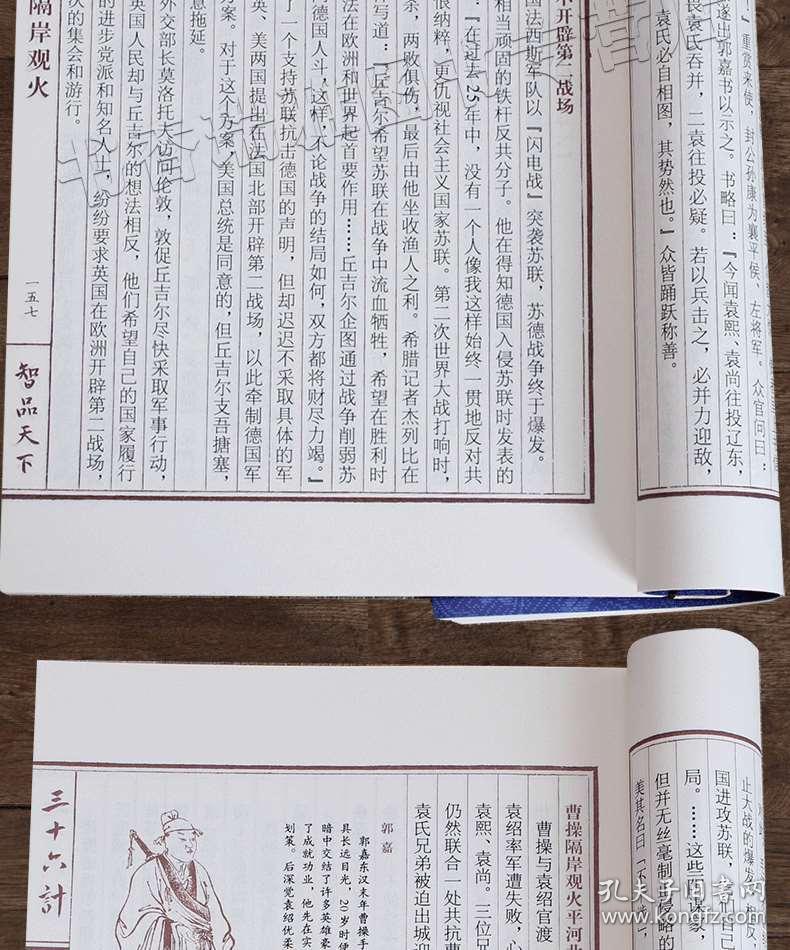 』重赏来使,封公孙康为襄平侯,左将军。众官问曰:
遂出郭嘉书以示之。书略曰:『今闻袁熙、袁尚往投辽东,
畏袁氏吞并,二袁往投必疑。若以兵击之,必并力迎敌,
袁氏必自相图,其势然也。』众皆踊跃称善。
开辟第二战场
国法西斯军队以『闪电战』突袭苏联,苏德战争终于爆发。
相当顽固的铁杆反共分子。他在得知德国入侵苏联时发表的
:『在过去25年中,没有一个人像我这样始终一贯地反对共
恨纳粹,更仇视社会主义国家苏联。第二次世界大战打响时,
杀,两败俱伤,最后由他坐收渔人之利。希腊记者杰列比在
并写道:『丘吉尔希望苏联在战争中流血牺牲,希望在胜利时
法在欧洲和世界起首要作用……丘吉尔企图通过战争削弱苏
德国人斗,这样,不论战争的结局如何,双方都将财尽力竭。』
了一个支持苏联抗击德国的声明,但却迟迟不采取具体的军
英、美两国提出在法国北部开辟第二战场,以此牵制德国军
方案。对于这个方案,美国总统是同意的,但丘吉尔支吾搪塞,
意拖延。
外交部长莫洛托夫访问伦敦,敦促丘吉尔尽快采取军事行动,
英国人民却与丘吉尔的想法相反,他们希望自己的国家履行
的进步党派和知名人士,纷纷要求英国在欧洲开辟第二战场,
次的集会和游行。
隔岸观火
一五七
智品天下
止大战的爆发。相反,
国进攻苏联,让自己
局。……这些阴谋家,
但并无丝毫制止侵略的
美其名曰『不
曹操隔岸观火平河北
曹操与袁绍官渡
袁绍率军遭失败,心
袁熙、袁尚。三位兄
仍然联合一处共抗曹
袁氏兄弟被迫出城迎
郭嘉
郭嘉东汉末年曹操手
具长远目光,20岁时便
暗中交结了许多英雄豪
了成就功业,他先在实
划策。后深觉袁绍优柔
三十六計
孔夫子旧书网
www.kongfz.com